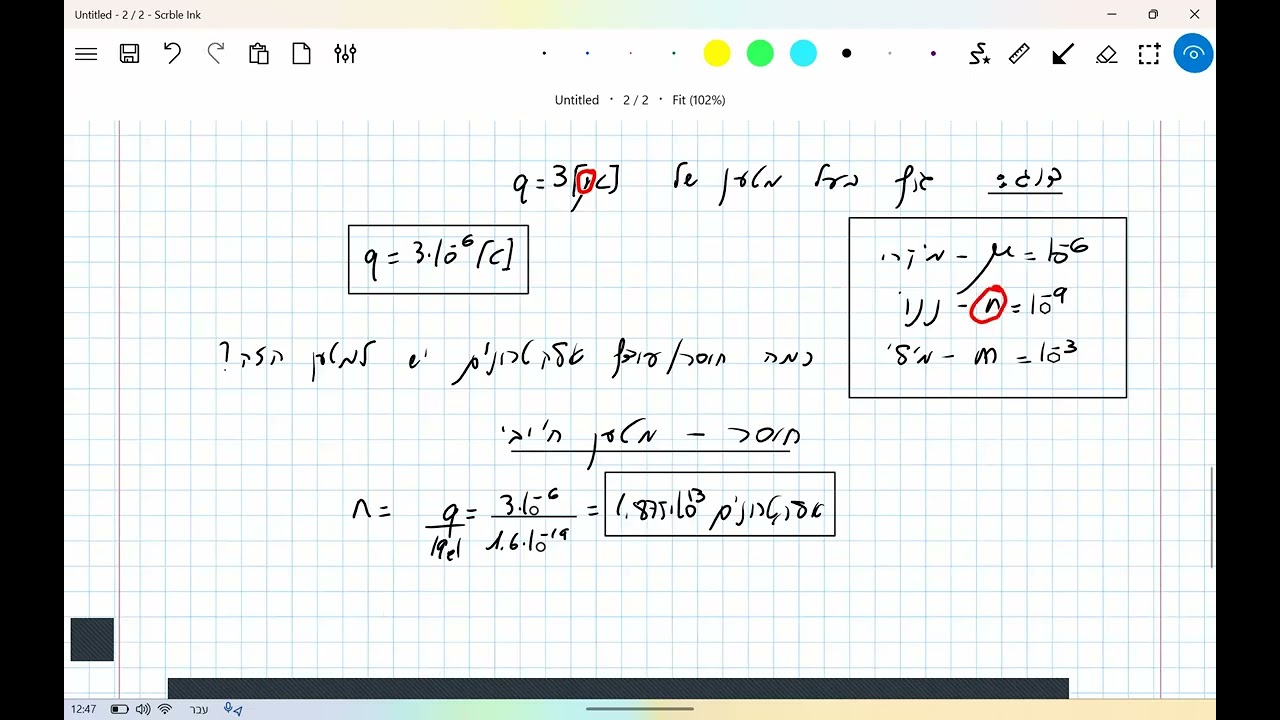 Untitled - 2 / 2 - Scrble Ink
Untitled · 2 / 2 · Fit (102%)
דוגמה: גוף בעל מטען של q = 3[μC]
q = 3·10⁻⁶ [C]
מיקרו - μ = 10⁻⁶
ננו - n = 10⁻⁹
מילי - m = 10⁻³
כמה חוסר/עודף אלקטרונים יש למטען הזה?
חוסר - מטען חיובי
n = q/|qel| = 3·10⁻⁶/1.6·10⁻¹⁹ = 1.875·10¹³ אלקטרונים
12:47 עבר